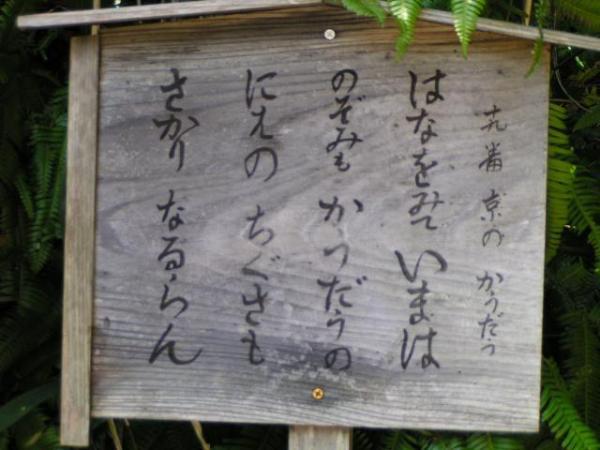 十九番 京の かうだう
はなをみて いまは
のぞみも かうだうの
にはの ちぐさも
さかり なるらん